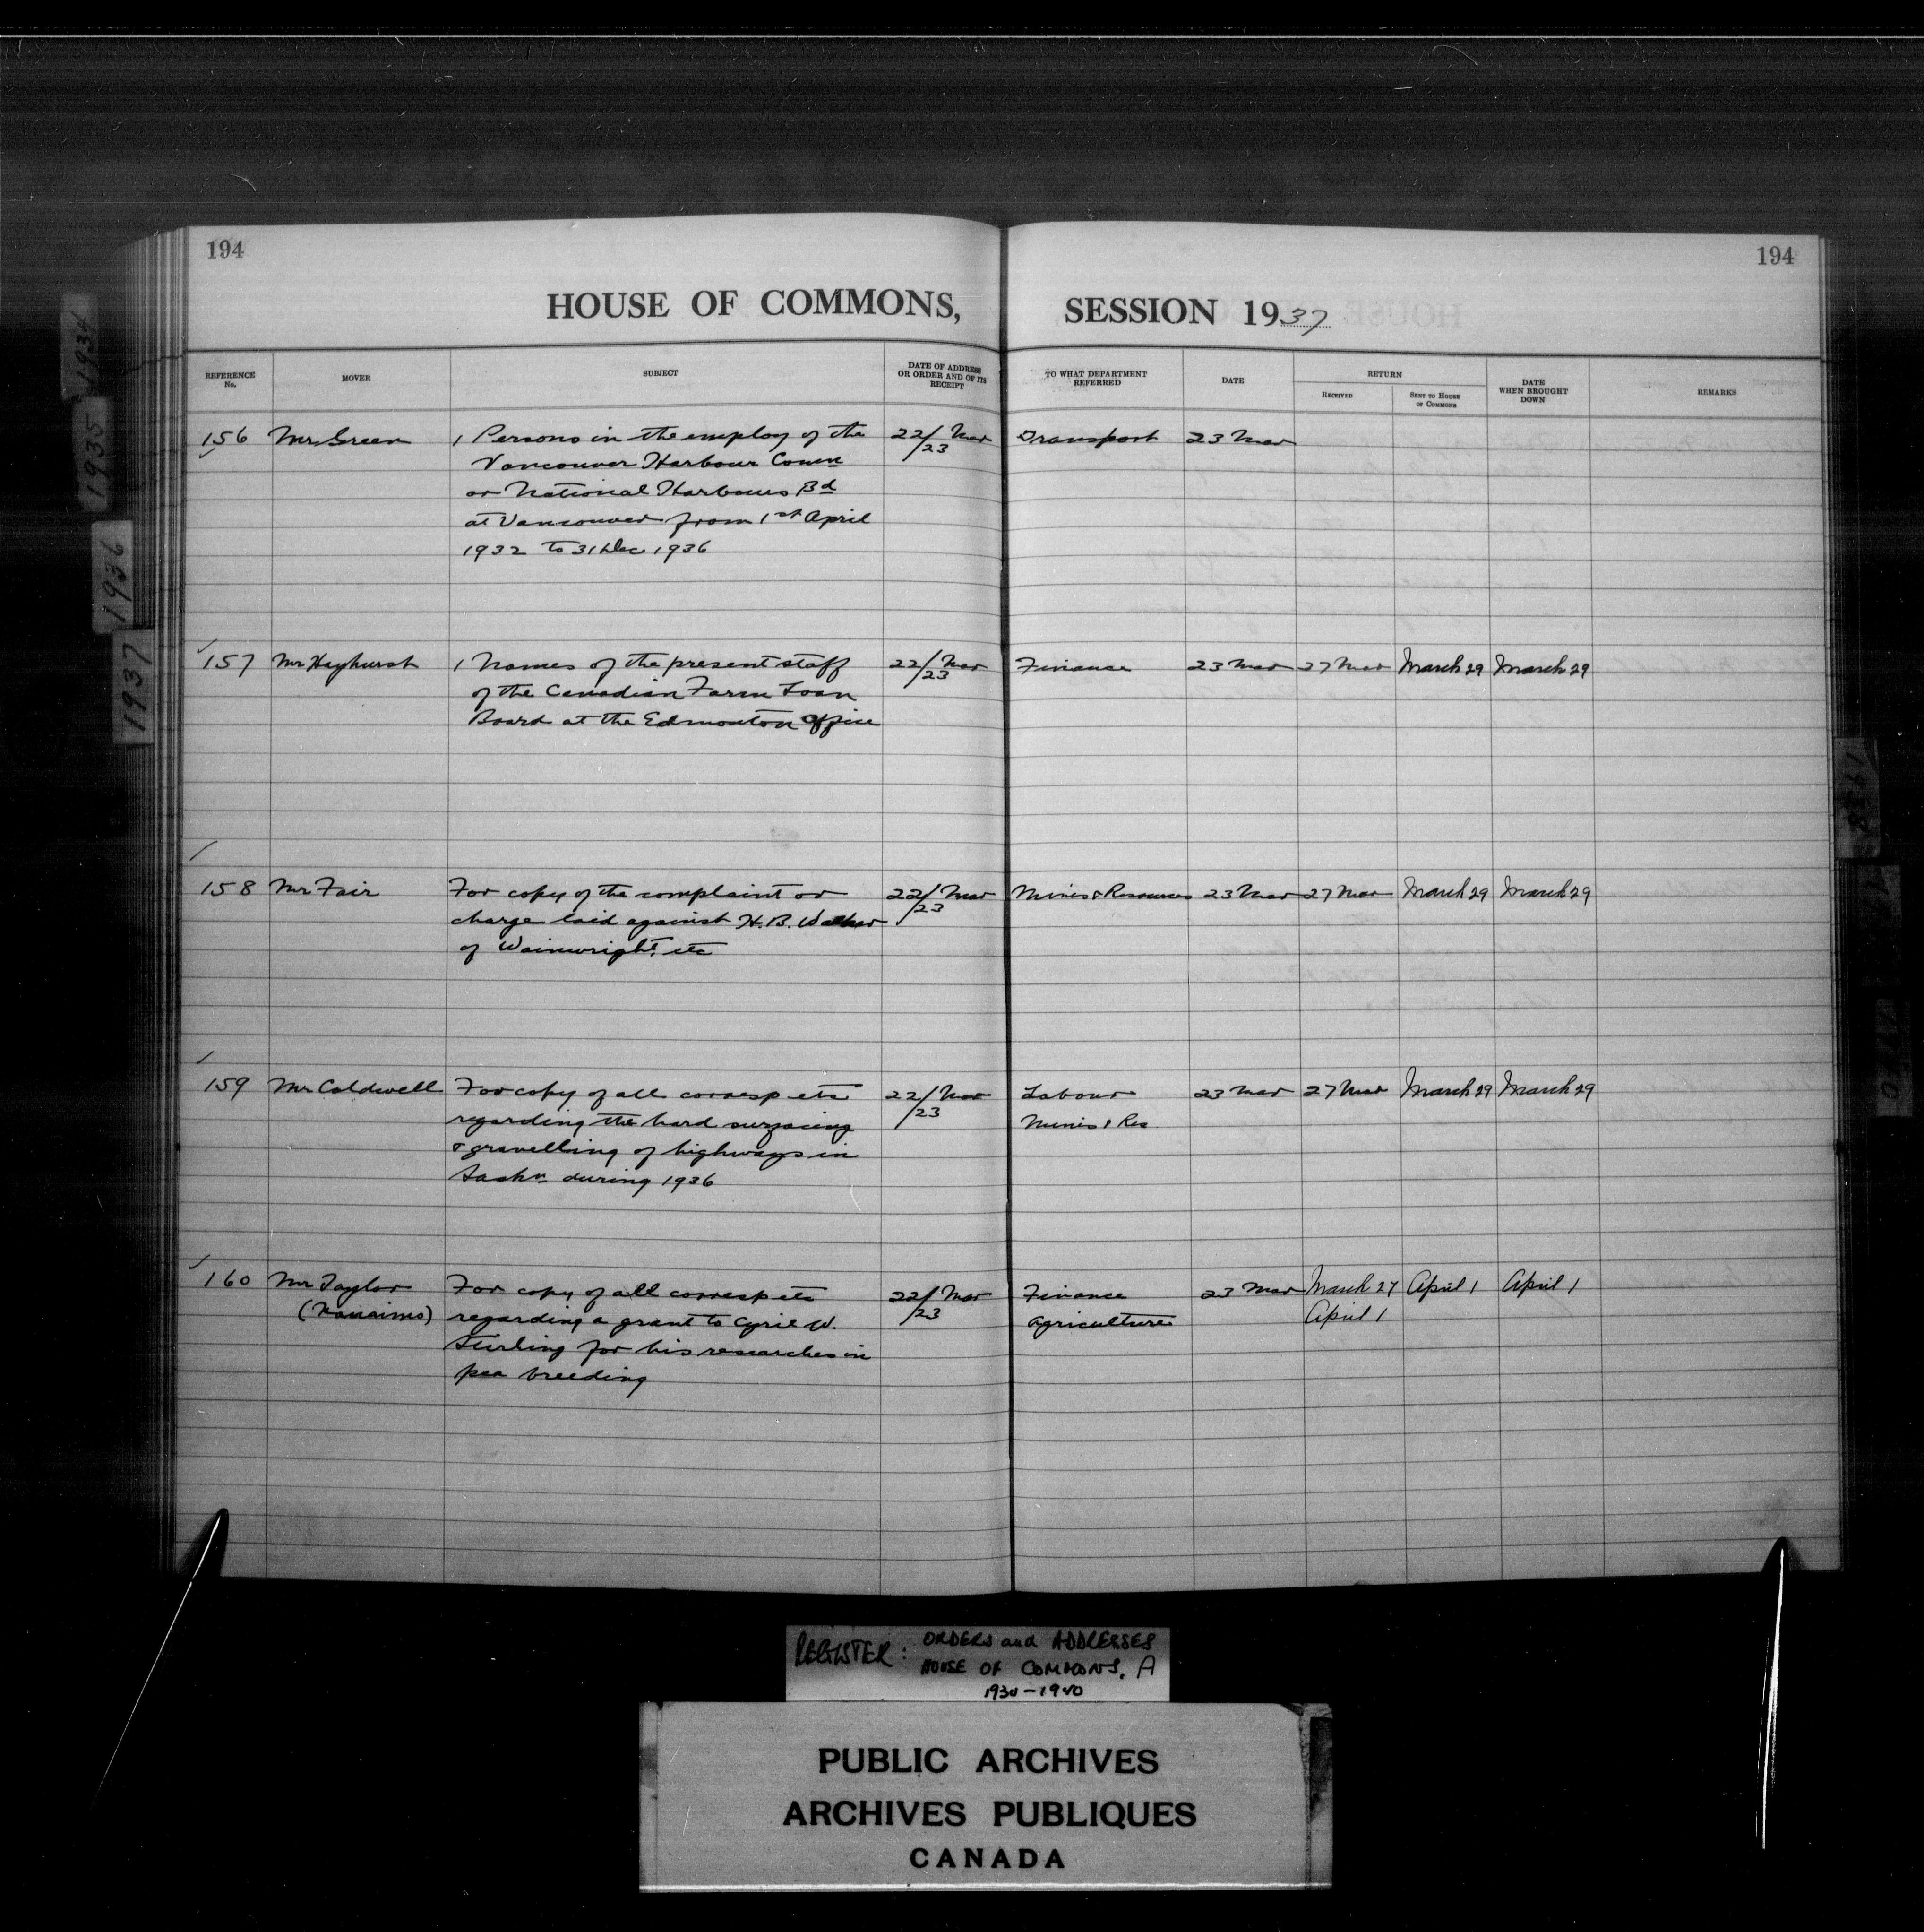 194
194
HOUSE OF COMMONS, SESSION 1937
REFERENCE No.
MOVER
SUBJECT
DATE OF ADDRESS OR ORDER AND OF ITS RECEIPT
TO WHAT DEPARTMENT REFERRED
DATE
RETURN
RECEIVED
SENT TO HOUSE OF COMMONS
DATE WHEN BROUGHT DOWN
REMARKS
156 Mr Green 1 Persons in the employ of the 22/23 Mar Transport 23 Mar
Vancouver Harbour Comn
or National Harbours Bd
at Vancouver from 1st April
1932 to 31 Dec 1936
157 Mr Hayhurst 1 Names of the present staff 22/23 Mar Finance 23 Mar 27 Mar March 29 March 29
of the Canadian Farm Loan
Board at the Edmonton Office
158 Mr Fair For copy of the complaint or 22/23 Mar Mines & Resources 23 Mar 27 Mar March 29 March 29
charge laid against H.B. Walker
of Wainwright, etc
159 Mr Coldwell For copy of all corresp etc 22/23 Mar Labour 23 Mar 27 Mar March 29 March 29
regarding the hard surfacing Mines & Res
& gravelling of highways in
Saskn during 1936
160 Mr Taylor For copy of all corresp etc 22/23 Mar Finance 23 Mar March 27 April 1 April 1
(Nanaimo) regarding a grant to Cyril W. Agriculture April 1
Stirling for his researches in
pea breeding
1934
1935
1936
1937
1938
REGISTER: ORDERS and ADDRESSES
HOUSE OF COMMONS. A
1930-1940
PUBLIC ARCHIVES
ARCHIVES PUBLIQUES
CANADA